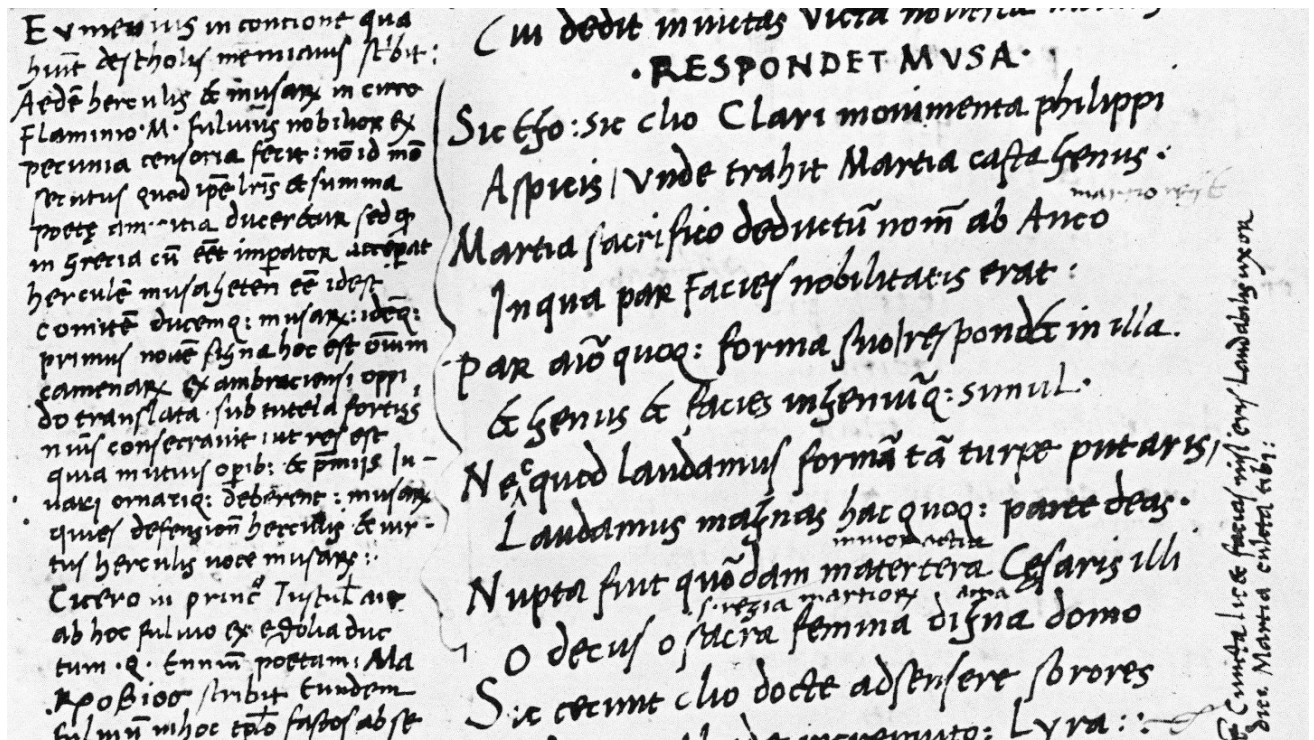 Eumenius in contione qua
hūt de scholis menianis scbit:
Aedē herculis & musarꝝ in circo
Flaminio·M· fulvius nobilior ex
pecunia censoria fecit: nō id mō
secutus quod ipē lrīs & summa
poetę amicitia duceretur sed q̄
in grecia cū eēt impator acceperat
herculē musageten eē idest
comitē ducemq: musarꝝ: idēq:
primus novē signa hoc est oīum
camenarꝝ ex ambraciensi oppi
do translata sub tutela fortiss
nuīs consecravit ut res est
quia mutuis opib: & pmiis Ju-
vari ornariq: deberent: musarꝝ
quies defensionē herculis & vir-
tus herculis voce musarꝝ::
Cicero in princ Tustul aīt
ab hoc fulvio ex ętolia duc
tum ·Q· Ennium poetam: Ma
κροβιος scribit Eundem
fulviū in hoc tplo fastos ab se
Cui dedit invictas victa
·RESPONDET MVSA·
Sic cħo: sic clio Clari monimenta philippi
Aspicis / Vnde trahit Martia casta genus·
Martia sacrifico deductū nom̄ ab Anco
In qua par facies nobilitatis erat:
Par aīo quoq: forma suo respondet in illa.
& genus & facies ingeniūq: simul·
Nec quod laudamus formā tā turpe putaris/
Laudamus magnas hac quoq: parte deas·
Nupta fuit quōdam matertera Cęsaris illi
s. regia martiorꝝ
O decus o sacra femina digna domo
Sic cecinit clio docte adsensere sorores
Lyra::
Cuncta licet facias nisi eris Laudabilis uxor